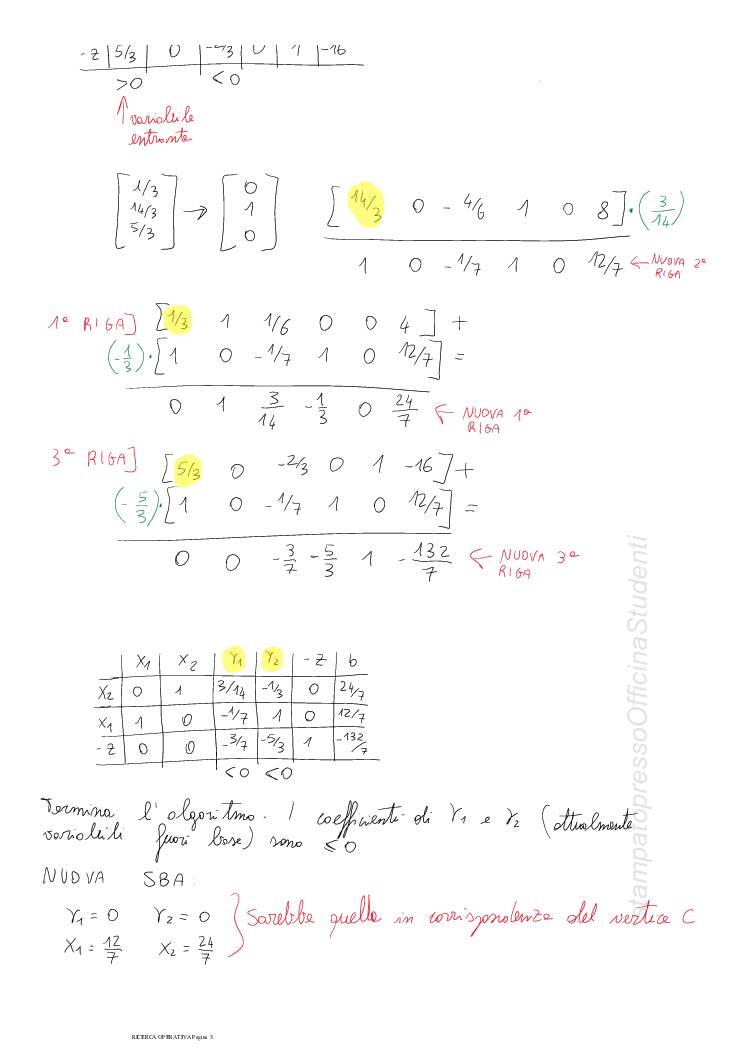 -z | 5/3 | 0 | -2/3 | 0 | 1 | -16
>0 <0
variabile
entrante
[1/3 14/3 5/3] → [0 1 0]
[14/3 0 -4/6 1 0 8] · (3/14)
1 0 -1/7 1 0 12/7 ← NUOVA 2ª RIGA
1ª RIGA] [1/3 1 1/6 0 0 4] +
(-1/3) · [1 0 -1/7 1 0 12/7] =
0 1 3/14 -1/3 0 24/7 ← NUOVA 1ª RIGA
3ª RIGA] [5/3 0 -2/3 0 1 -16] +
(-5/3) · [1 0 -1/7 1 0 12/7] =
0 0 -3/7 -5/3 1 -132/7 ← NUOVA 3ª RIGA
X1 | X2 | Y1 | Y2 | -z | b
X2 | 0 | 1 | 3/14 | -1/3 | 0 | 24/7
X1 | 1 | 0 | -1/7 | 1 | 0 | 12/7
-z | 0 | 0 | -3/7 | -5/3 | 1 | -132/7
<0 <0
Termina l'algoritmo. I coefficienti di Y1 e Y2 (attualmente
variabili fuori base) sono ≤0
NUOVA SBA:
Y1 = 0 Y2 = 0 } Sarebbe quella in corrispondenza del vertice C
X1 = 12/7 X2 = 24/7
tampatopressoOfficinaStudenti
RICERCA OPERATIVA Pagina 3